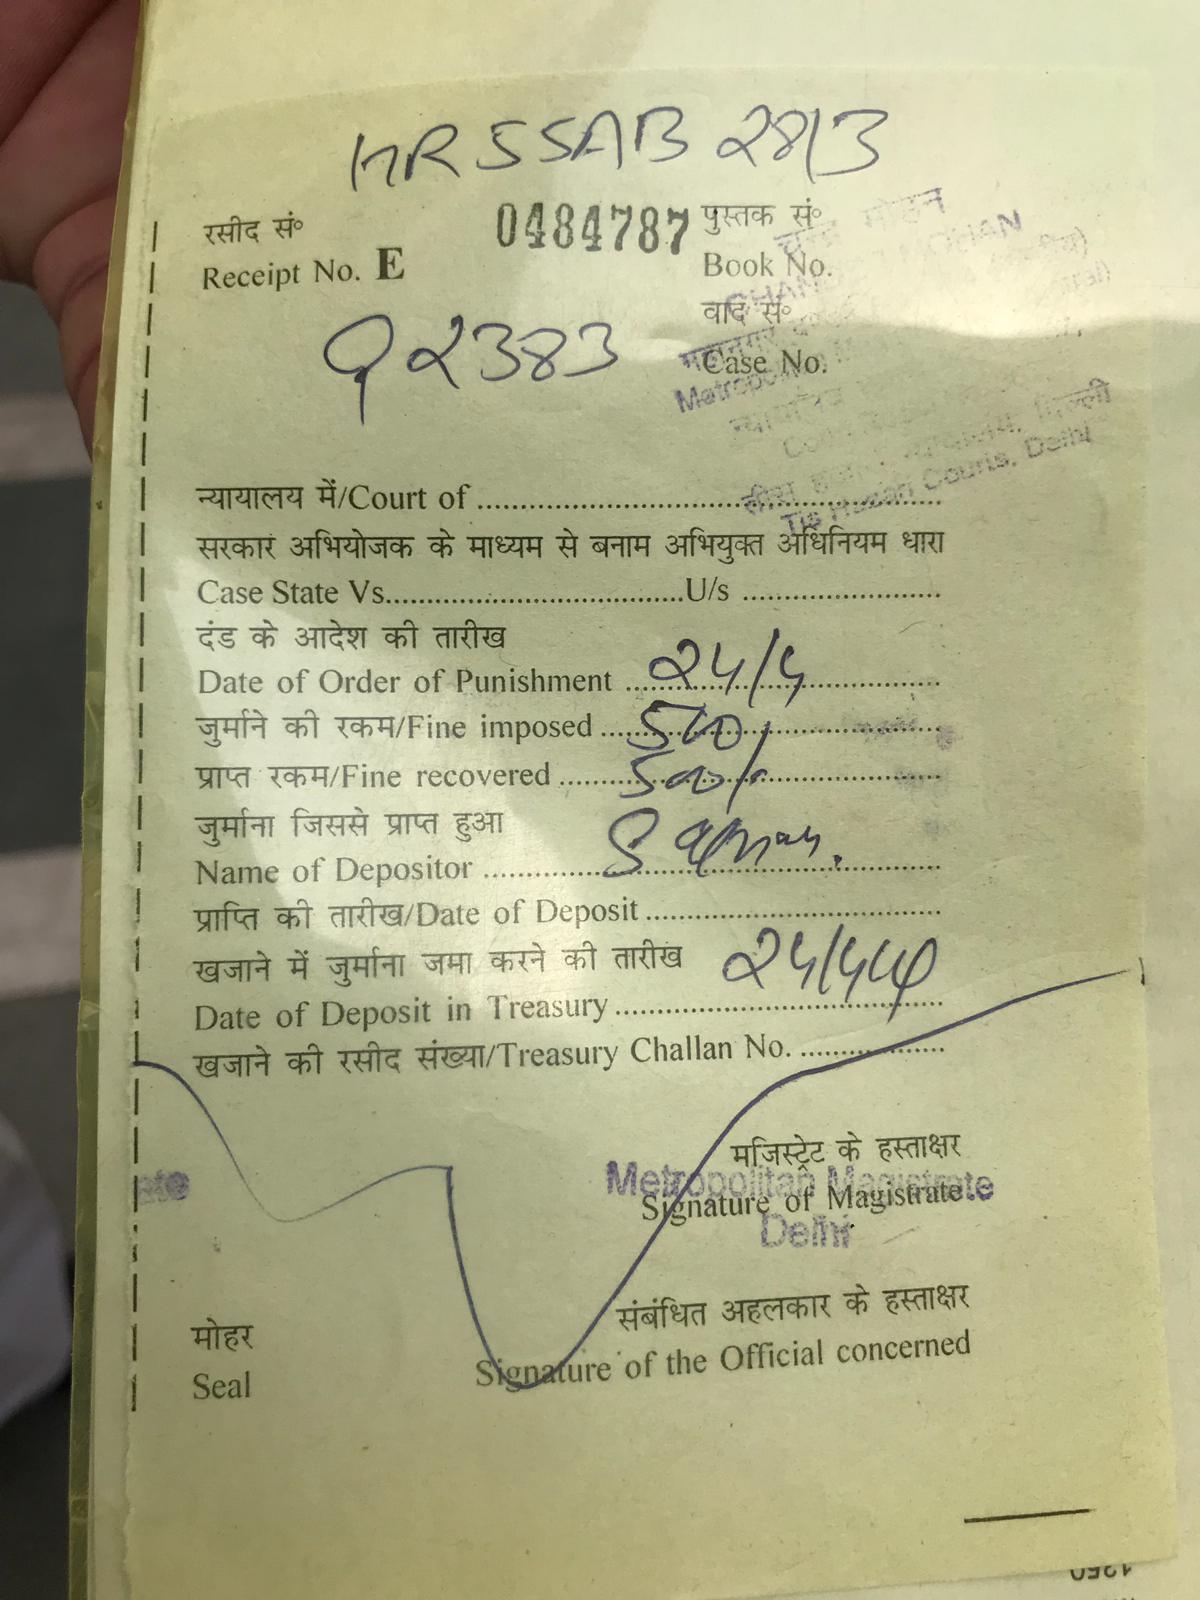 HR55AB 2813
रसीद सं॰ 0484787 पुस्तक सं॰
Receipt No. E Book No.
वाद सं॰
92383 Case No.
न्यायालय में/Court of
तीस हजारी न्यायालय, दिल्ली
Tis Hazari Courts, Delhi
सरकार अभियोजक के माध्यम से बनाम अभियुक्त अधिनियम धारा
Case State Vs. U/s
दंड के आदेश की तारीख
Date of Order of Punishment 24/4
जुर्माने की रकम/Fine imposed 500/
प्राप्त रकम/Fine recovered 500/-
जुर्माना जिससे प्राप्त हुआ
Name of Depositor
प्राप्ति की तारीख/Date of Deposit
खजाने में जुर्माना जमा करने की तारीख
Date of Deposit in Treasury
खजाने की रसीद संख्या/Treasury Challan No.
मजिस्ट्रेट के हस्ताक्षर
Metropolitan Magistrate
Signature of Magistrate
Delhi
संबंधित अहलकार के हस्ताक्षर
मोहर
Signature of the Official concerned
Seal